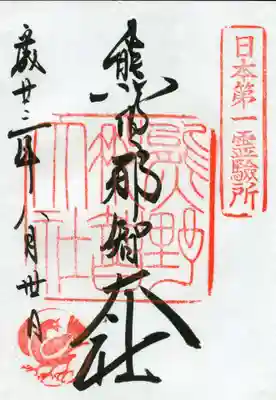 日本第一霊験所
熊野那智大社
熊野
那智
大社
年八月